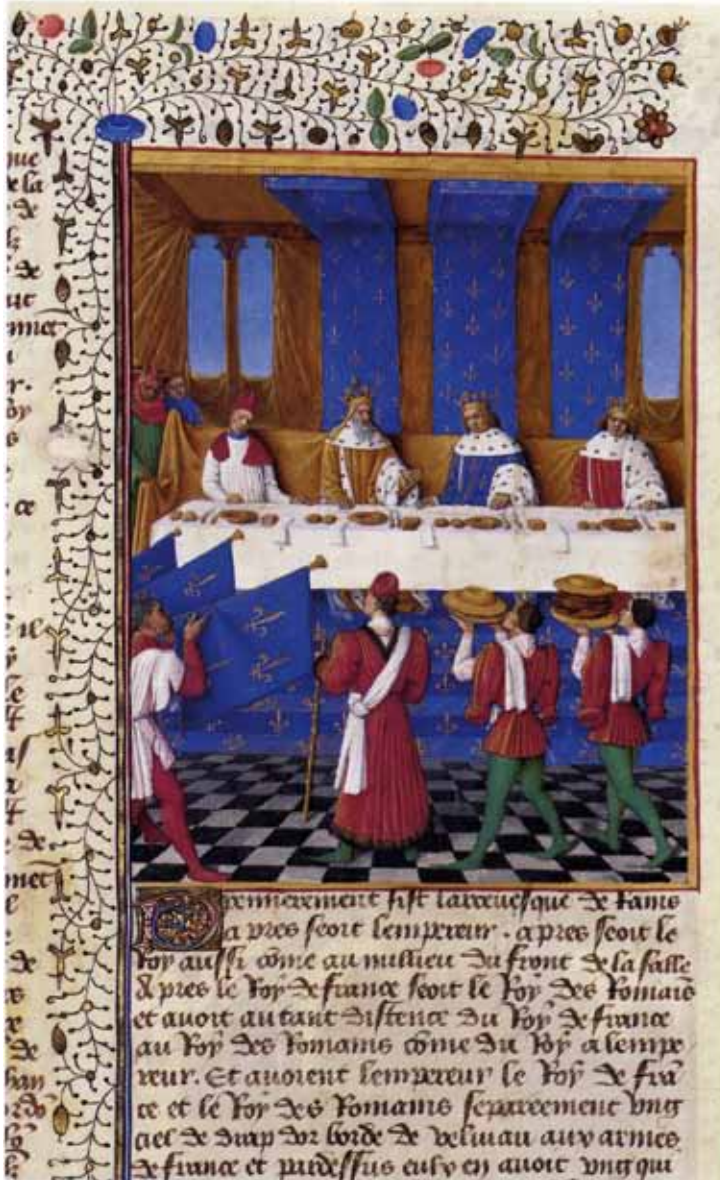 que
de la
de
de
mect
r.
oy
s
ce
il
de
mect
de
de
han
Premierement sist larcevesque de Rains
apres seoit lempereur. apres seoit le
Roy aussi cõme au millieu du front de la salle
Apres le Roy de france seoit le Roy des Romaĩs
et avoit autant distence du Roy de france
au Roy des Romains cõme du Roy a lempe
reur. Et avoient lempereur le Roy de frã
ce et le Roy des Romains separeement ung
ciel de drap dor borde de veluiau aux armes
de france et pardessus eulx en avoit ung qui